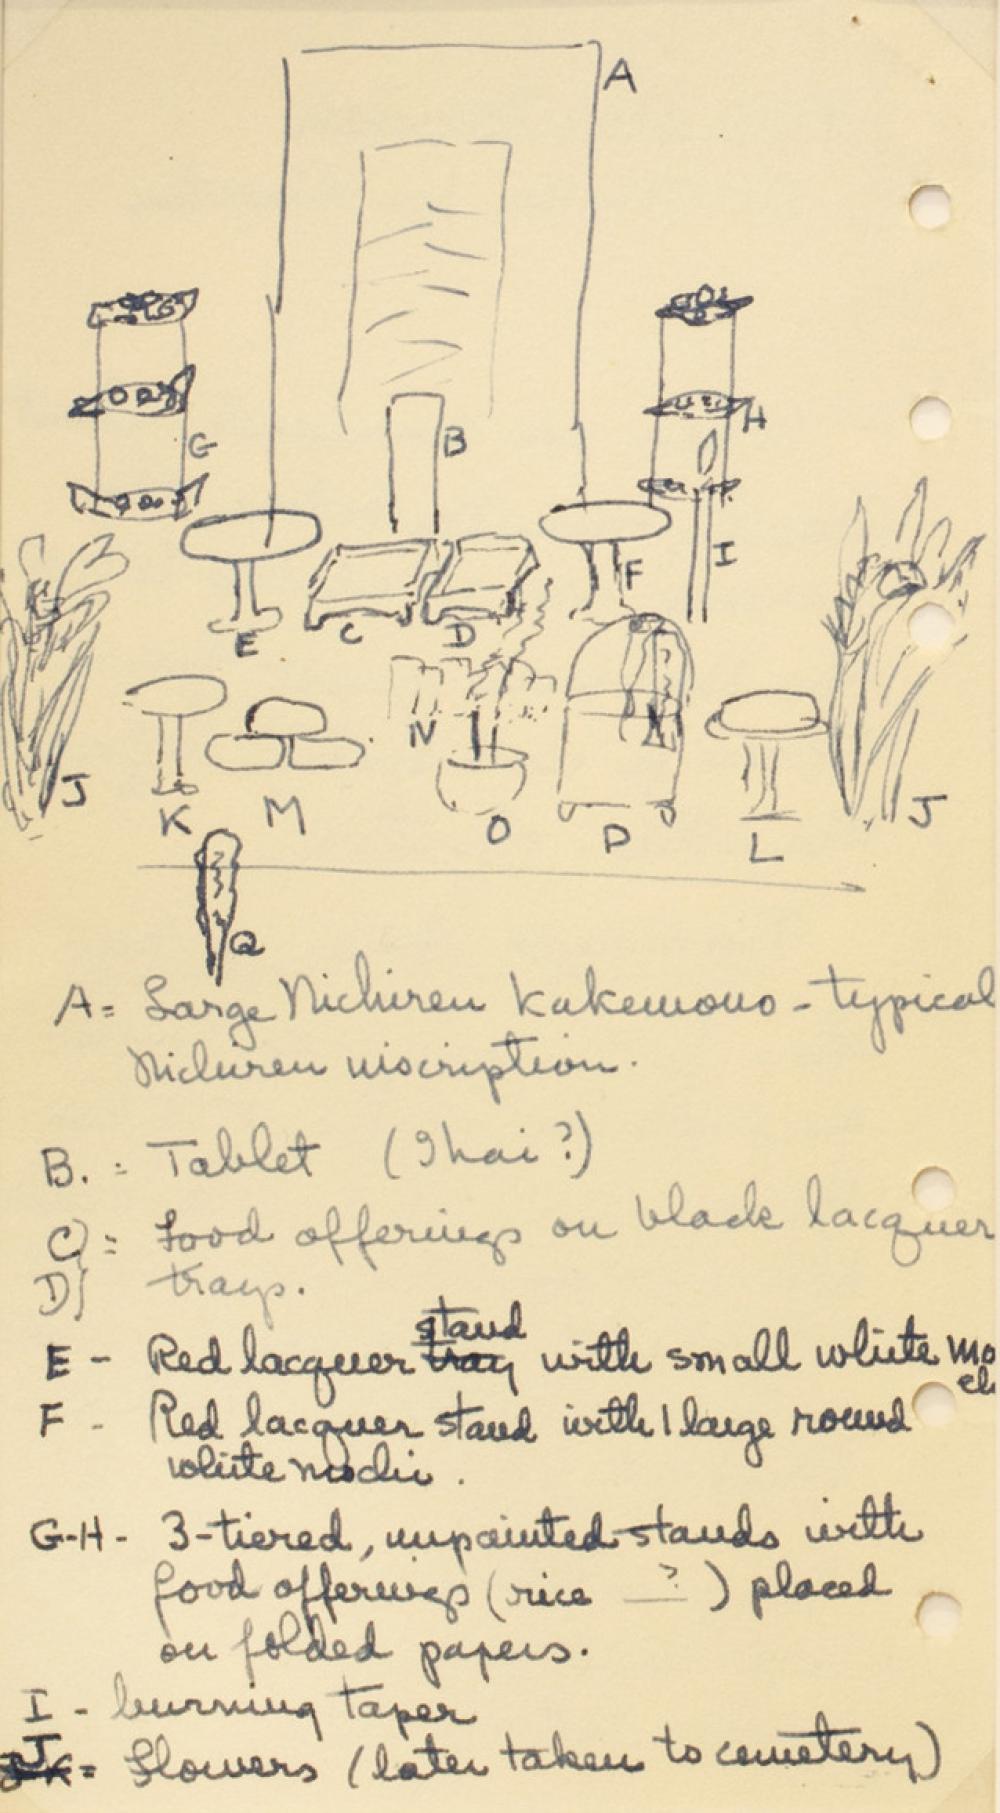 A
B
G
H
I
F
E
C
D
J
K
M
N
O
P
L
J
Q
A = Large Nichiren Kakemono - typical
Nichiren inscription.
B. = Tablet (Ihai?)
C) = Food offerings on black lacquer
D) trays.
stand
E - Red lacquer tray with small white mo
chi
F - Red lacquer stand with 1 large round
white mochi.
G-H - 3-tiered, unpainted stands with
food offerings (rice ?) placed
on folded papers.
I - burning taper
J
= Flowers (later taken to cemetery)